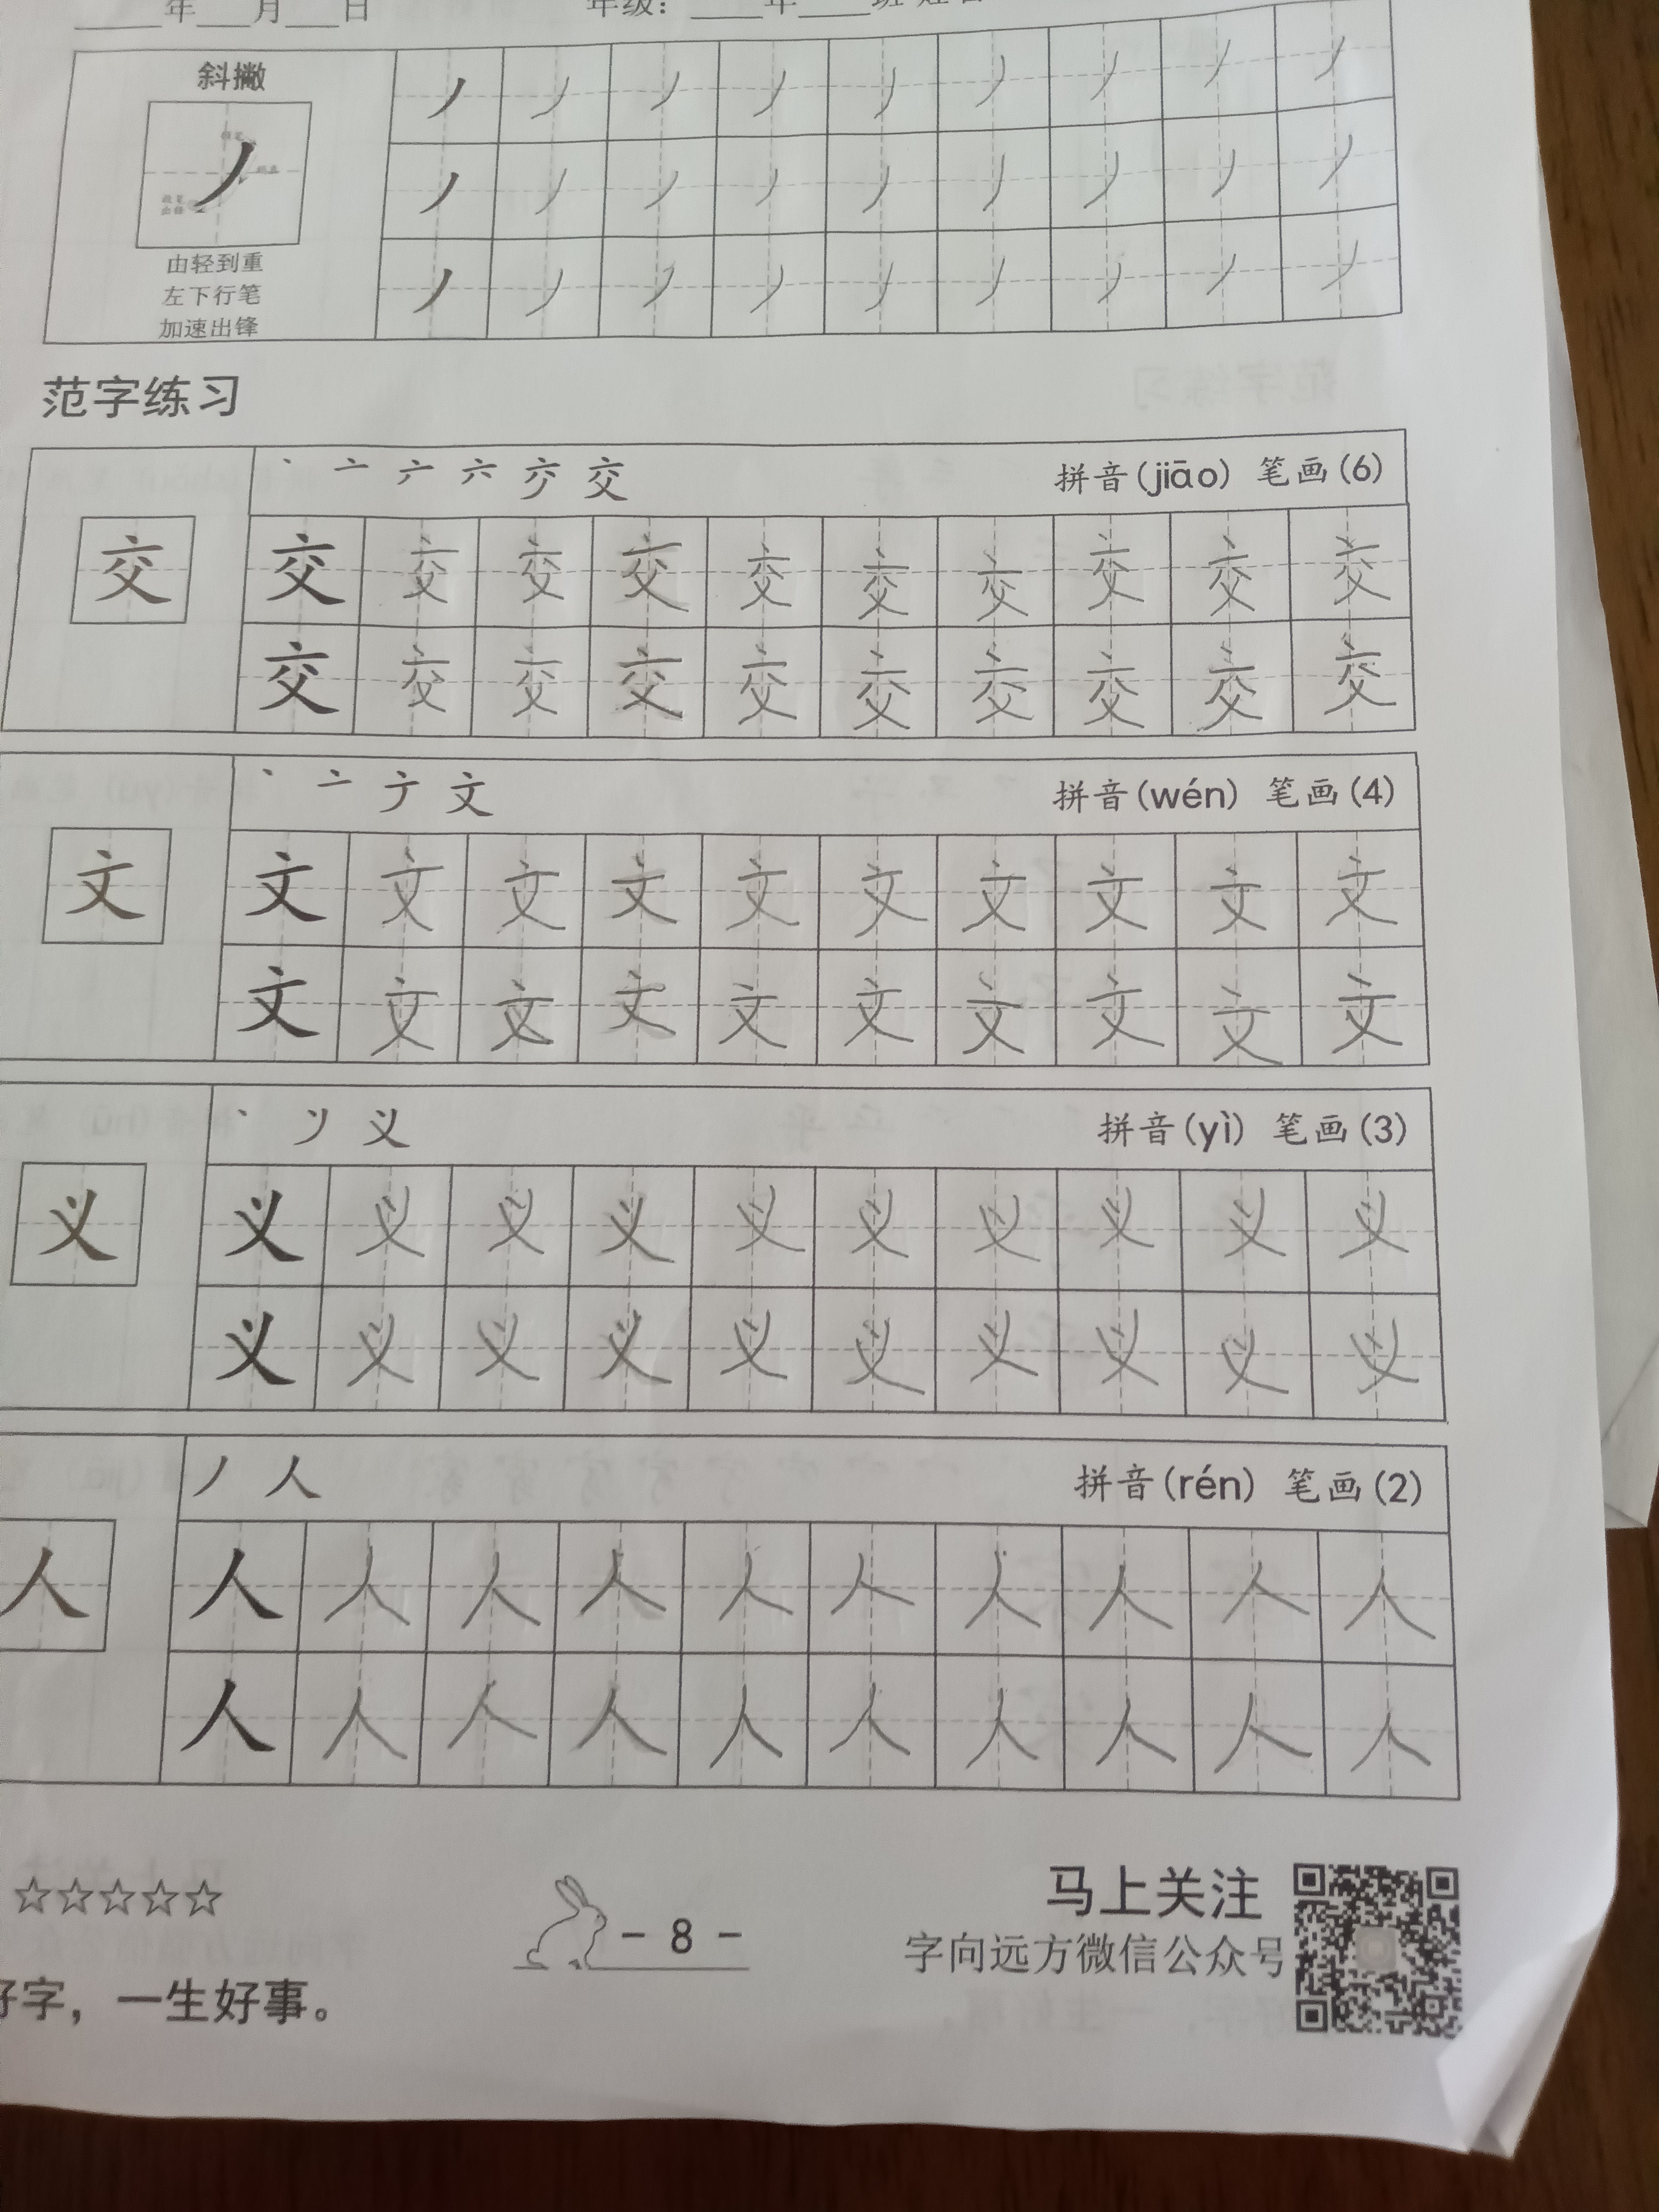 年 月 日
年级： 年 班
斜撇
由轻到重
左下行笔
加速出锋
丿 丿 丿 丿 丿 丿 丿 丿 丿
丿 丿 丿 丿 丿 丿 丿 丿 丿
丿 丿 丿 丿 丿 丿 丿 丿 丿
范字练习
交
拼音(jiāo) 笔画(6)
交 交 交 交 交 交 交 交 交 交
交 交 交 交 交 交 交 交 交 交
文
拼音(wén) 笔画(4)
文 文 文 文 文 文 文 文 文 文
文 文 文 文 文 文 文 文 文 文
义
拼音(yì) 笔画(3)
义 义 义 义 义 义 义 义 义 义
义 义 义 义 义 义 义 义 义 义
人
丿 人 拼音(rén) 笔画(2)
人 人 人 人 人 人 人 人 人 人
人 人 人 人 人 人 人 人 人 人
☆☆☆☆☆
- 8 -
马上关注
字向远方微信公众号
好字，一生好事。